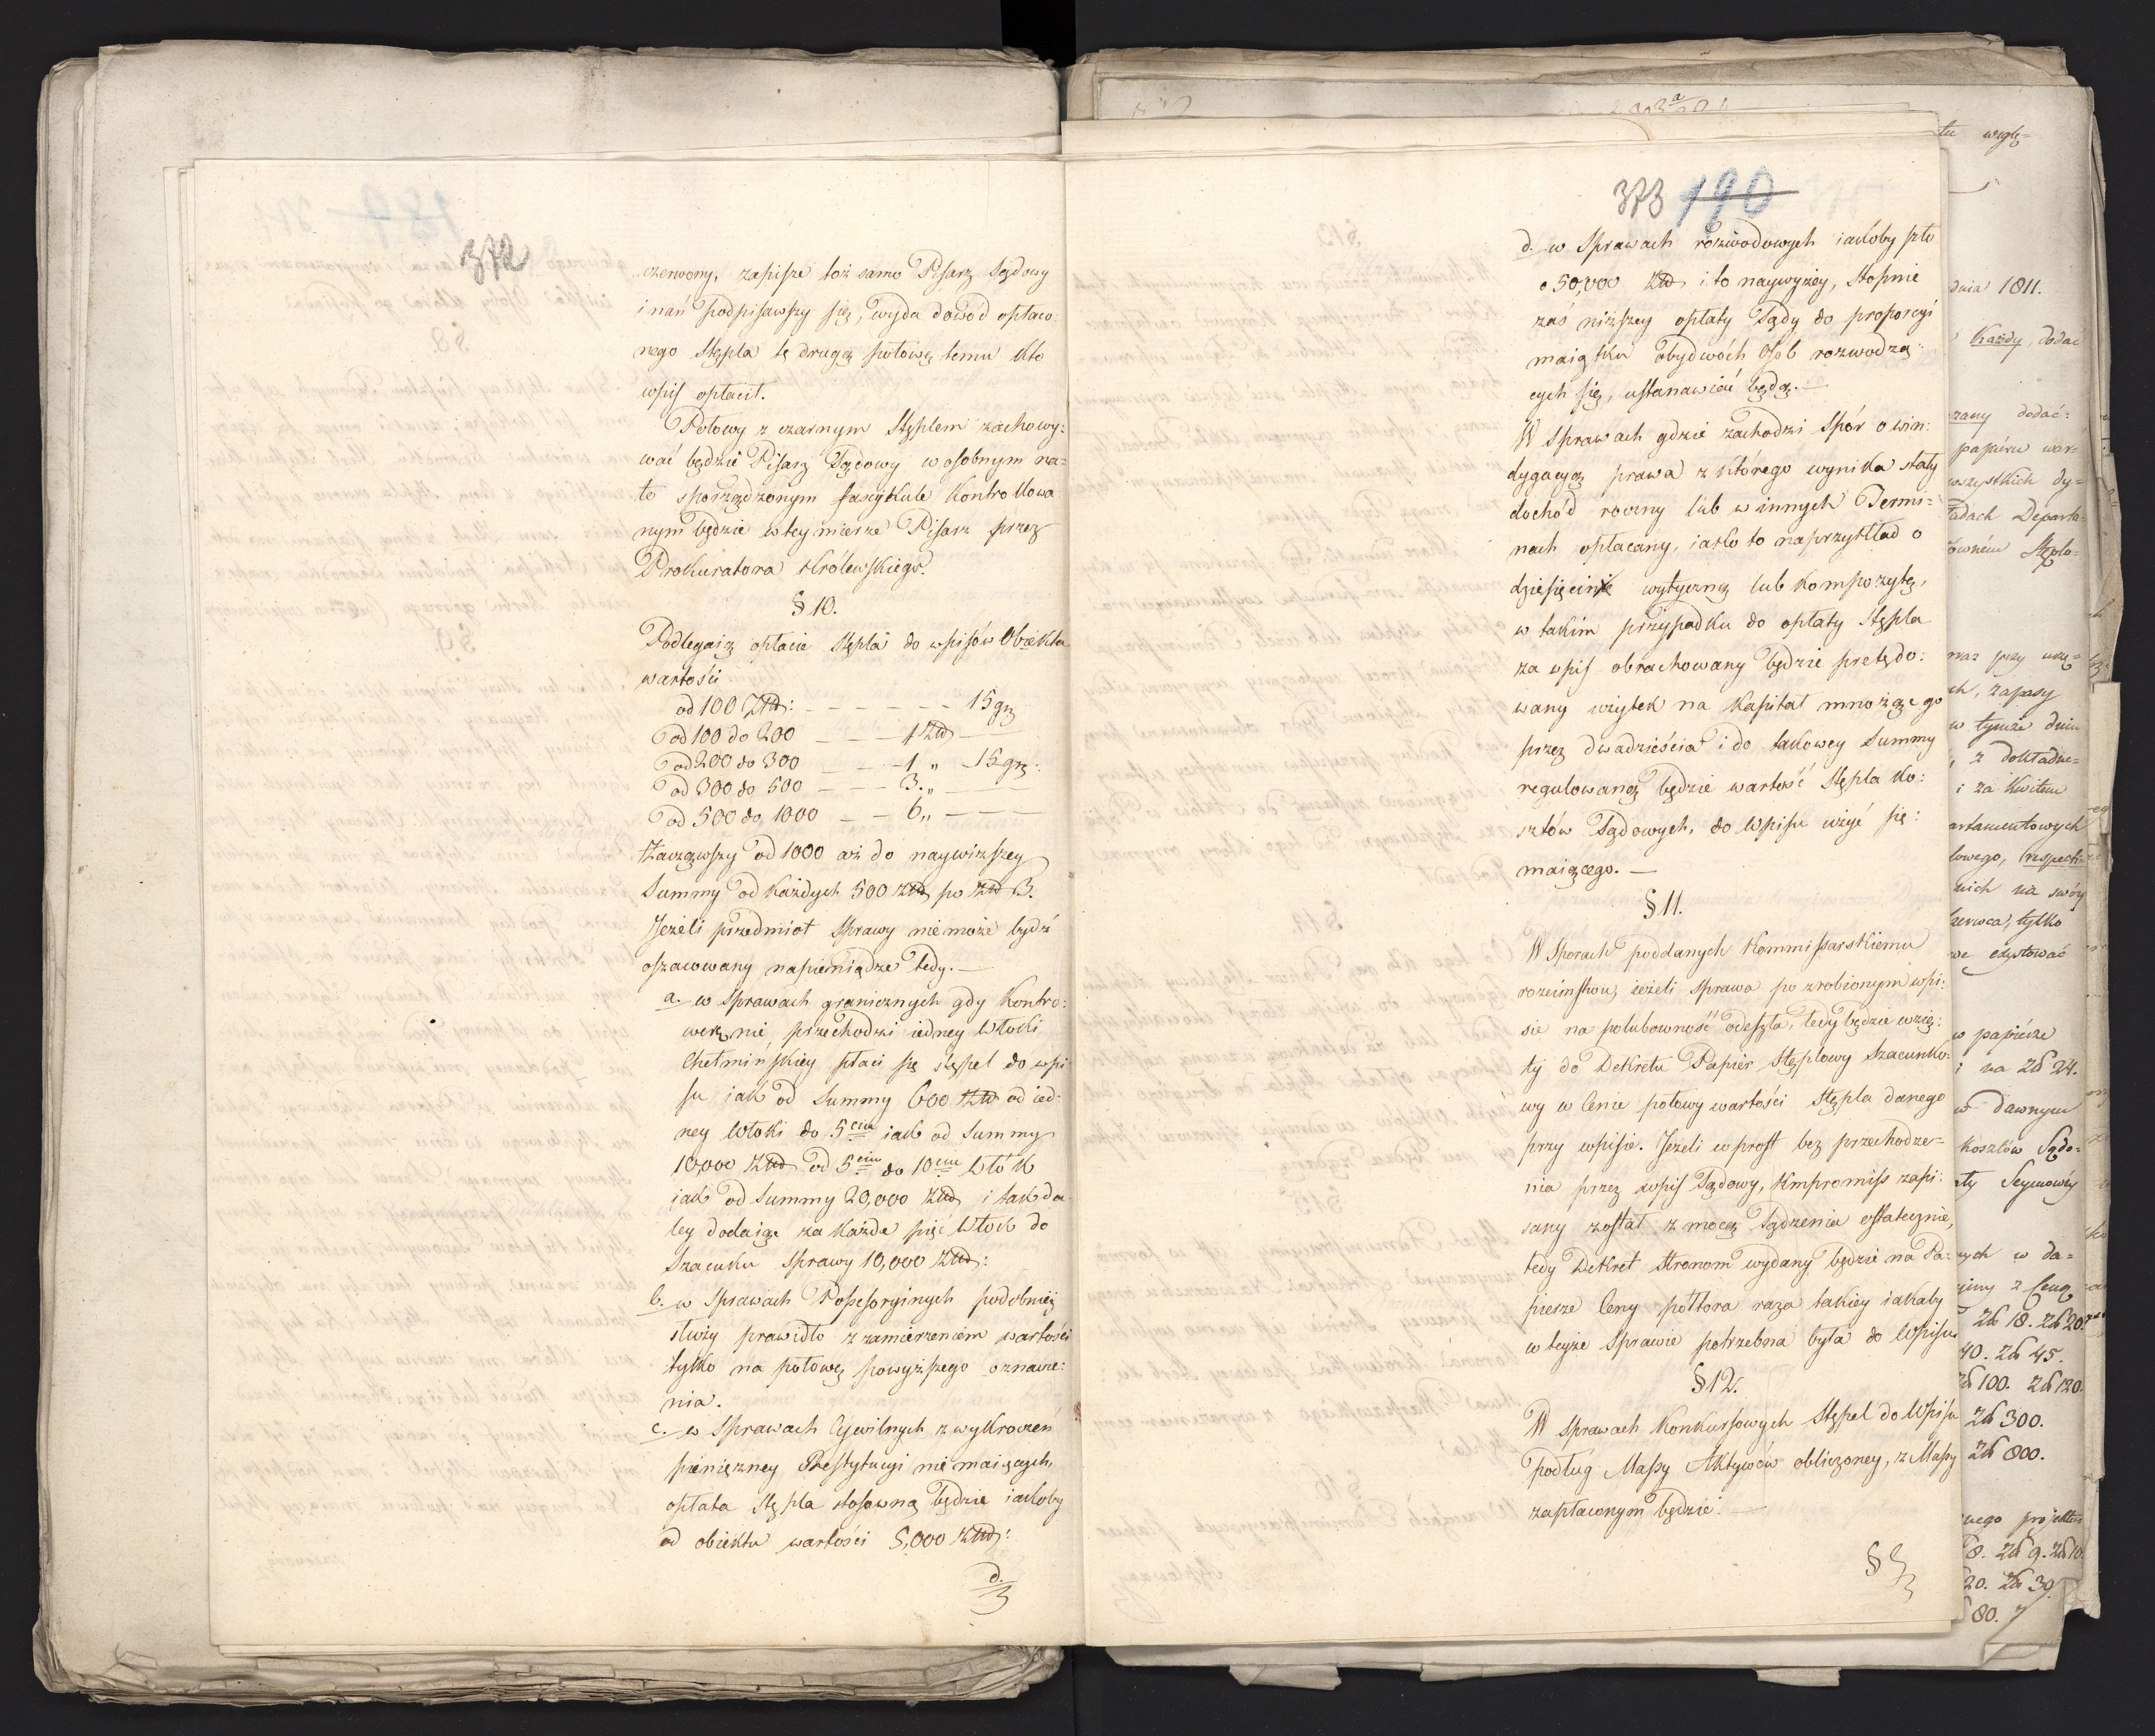 372
czerwony, zapisze toż samo Pisarz Sądowy
i nań podpisawszy się, wyda dowód opłaco
nego Stępla tę drugą połowę temu kto
wpis opłacił.
Połowy z czarnym Stęplem zachowy:
wać będzie Pisarz Sądowy w osobnym na=
to sporządzonym fascykule kontrollowa
nym będzie w tey mierze Pisarz przez
Prokuratora Królewskiego.
§ 10.
Podlegaią opłacie Stępla do wpisów Obiekta
wartości
od 100 Złł: — — — — — — 15 gr
od 100 do 200 — — — 1 Zł —
od 200 do 300 — — — 1 „ — 15 gr:
od 300 do 500 — — — 3. „ —
od 500 do 1000 — — 6 „ — — —
Zacząwszy od 1000 aż do naywiższey
Summy od każdych 500 złł po złł 3.
Jeżeli przedmiot sprawy nie może bydź
oszacowany na pieniądze tedy. —
a. w Sprawach granicznych gdy Kontro:
wers nie przechodzi iedney Włoki
Chełmińskiey płaci się stępel do wpi
su iak od Summy 600 złł od ied-
ney Włoki do 5ciu iak od Summy
10,000 Złł od 5ciu do 10ciu Włók
iak od Summy 20,000 złł i tak da
ley dodaiąc za każde pięć Włók do
Szacuku sprawy 10,000 złł:
b. w Sprawach Possessoryinych podobnież
służy prawidło z zamierzeniem wartości
tylko na połowę powyższego oznacze:
nia.
c. w Sprawach Cywilnych z wykroczeń
pieniężney Prestytucyi nie maiących
opłata Stępla stosowną będzie iakoby
od obiektu wartości 5,000 złł:
d.
373 190
d. w Sprawach rozwodowych iakoby szło
o 50,000 złł i to naywyżey, Stopnie
zaś niższey opłaty Sądy do proporcyi
maiątku obydwóch Osób rozwodzą:
cych się, ustanawiać będą. —
W Sprawach gdzie zachodzi Spór o win:
dygacyą prawa z którego wynika stały
dochod roczny lub w innych Termi=
nach opłacany, iako to naprzykład o
dziesięcinę wytyczną lub kompozytę,
w takim przypadku do opłaty Stępla
za wpis obrachowany będzie pretędo:
wany użytek na kapitał mnożąc go
przez dwadzieścia i do takowey Summy
regulowaną będzie wartość Stępla ko:
sztów Sądowych, do Wpisu użyć się:
maiącego. —
§ 11.
W Sporach poddanych Kommissarskiemu
rozeimstwu, ieżeli sprawa po zrobionym wpi:
sie na polubowność odeszła, tedy będzie wzię:
ty do Dekretu Papier Stęplowy Szacunko:
wy w Cenie połowy wartości Stępla danego
przy wpisie. Jeżeli wprost bez przechodze=
nia przez wpis Sądowy, Kmpromiss zapi:
sany został z mocą sądzenia ostatecznie,
tedy Dekret Stronom wydany będzie na Pa:
pierze Ceny półtora raza takiey iakaby
w teyże Sprawie potrzebna była do Wpisu
§ 12.
W Sprawach Konkursowych Stępel do Wpisu
podług Massy Aktywów obliczoney, z Massy
zapłaconym będzie. —
§
tu wzglę=
dnia 1811.
Każdy, dodać
dodać:
papieru war=
wszystkich dy=
Departa=
Stęplo=
przy
zapasy
w tymże dniu
z dokładne=
i za kwitem
artamentowych
respecti=
na swóy
tylko
exystować
w papierze
na zł 24.
w dawnym
kosztów Sądo=
Seymowy
w da=
z Ceną
zł 18. zł 20.
40. zł 45.
zł 100. zł 120.
zł 300.
zł 800.
projektu
8. zł 9. zł 10.
20. zł 30.
80.